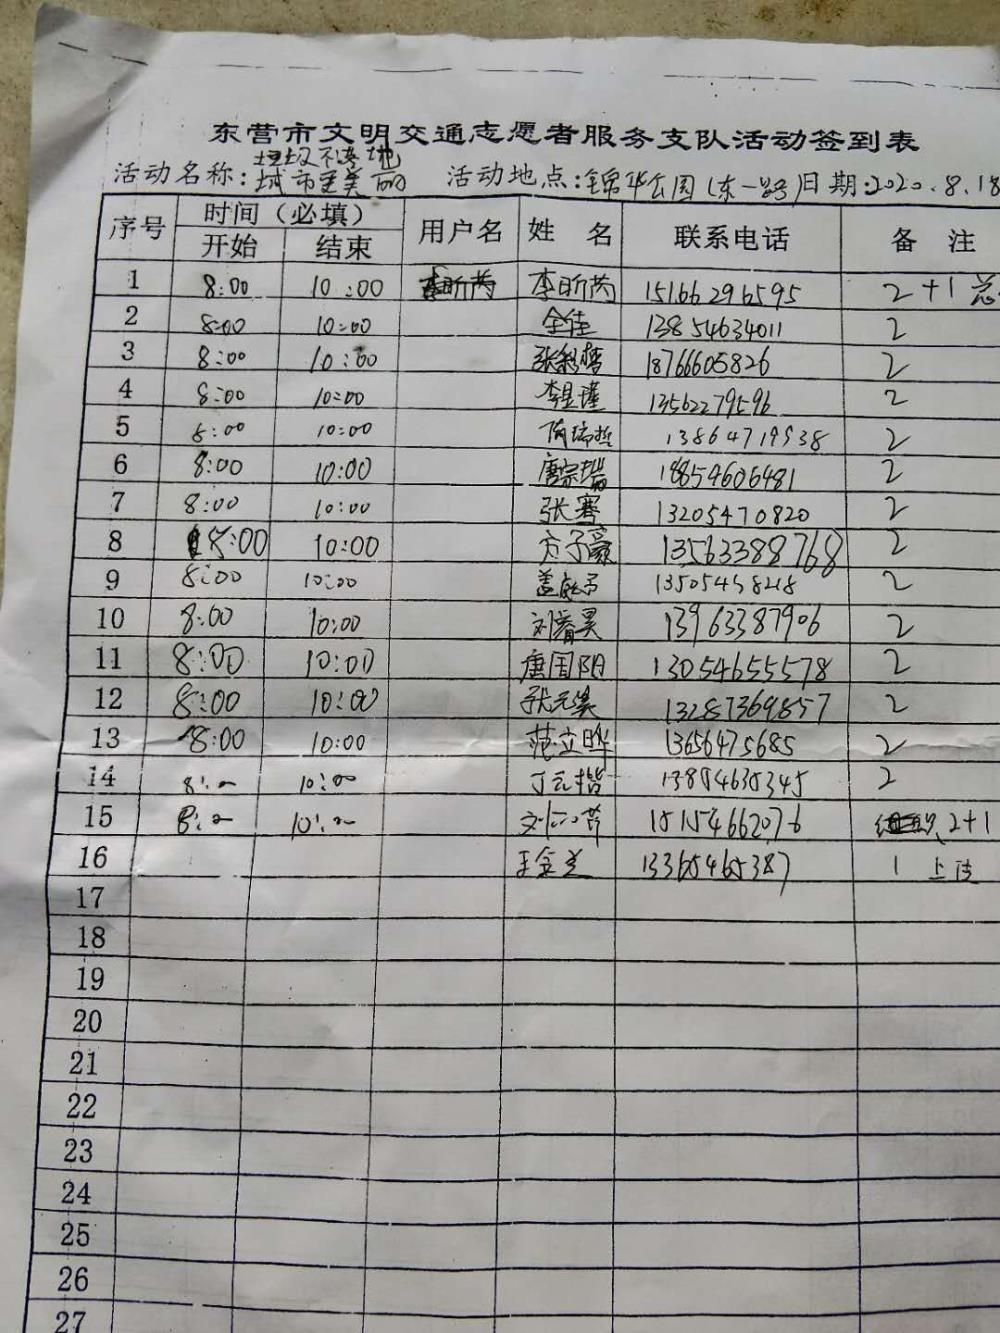 东营市文明交通志愿者服务支队活动签到表
活动名称：垃圾不落地 城市更美丽 活动地点：锦华公园（东一路）日期：2020.8.18
序号 时间（必填） 用户名 姓 名 联系电话 备 注
开始 结束
1 8:00 10:00 李昕芮 李昕芮 15166296595 2+1 总
2 8:00 10:00 全佳 13854634011 2
3 8:00 10:00 18766605826 2
4 8:00 10:00 李昱瑾 13562279596 2
5 8:00 10:00 13864719938 2
6 8:00 10:00 唐宗瑞 18859606481 2
7 8:00 10:00 张骞 13205470820 2
8 8:00 10:00 方子豪 13563388768 2
9 8:00 10:00 13505458218 2
10 8:00 10:00 刘睿昊 13963387906 2
11 8:00 10:00 唐国阳 13054655578 2
12 8:00 10:00 张元溪 13287369857 2
13 8:00 10:00 范立晔 13656475685 2
14 8:00 10:00 丁元楷 13854635345 2
15 8:00 10:00 15154662076 2+1
16 王金兰 13365465387 1 上传
17
18
19
20
21
22
23
24
25
26
27